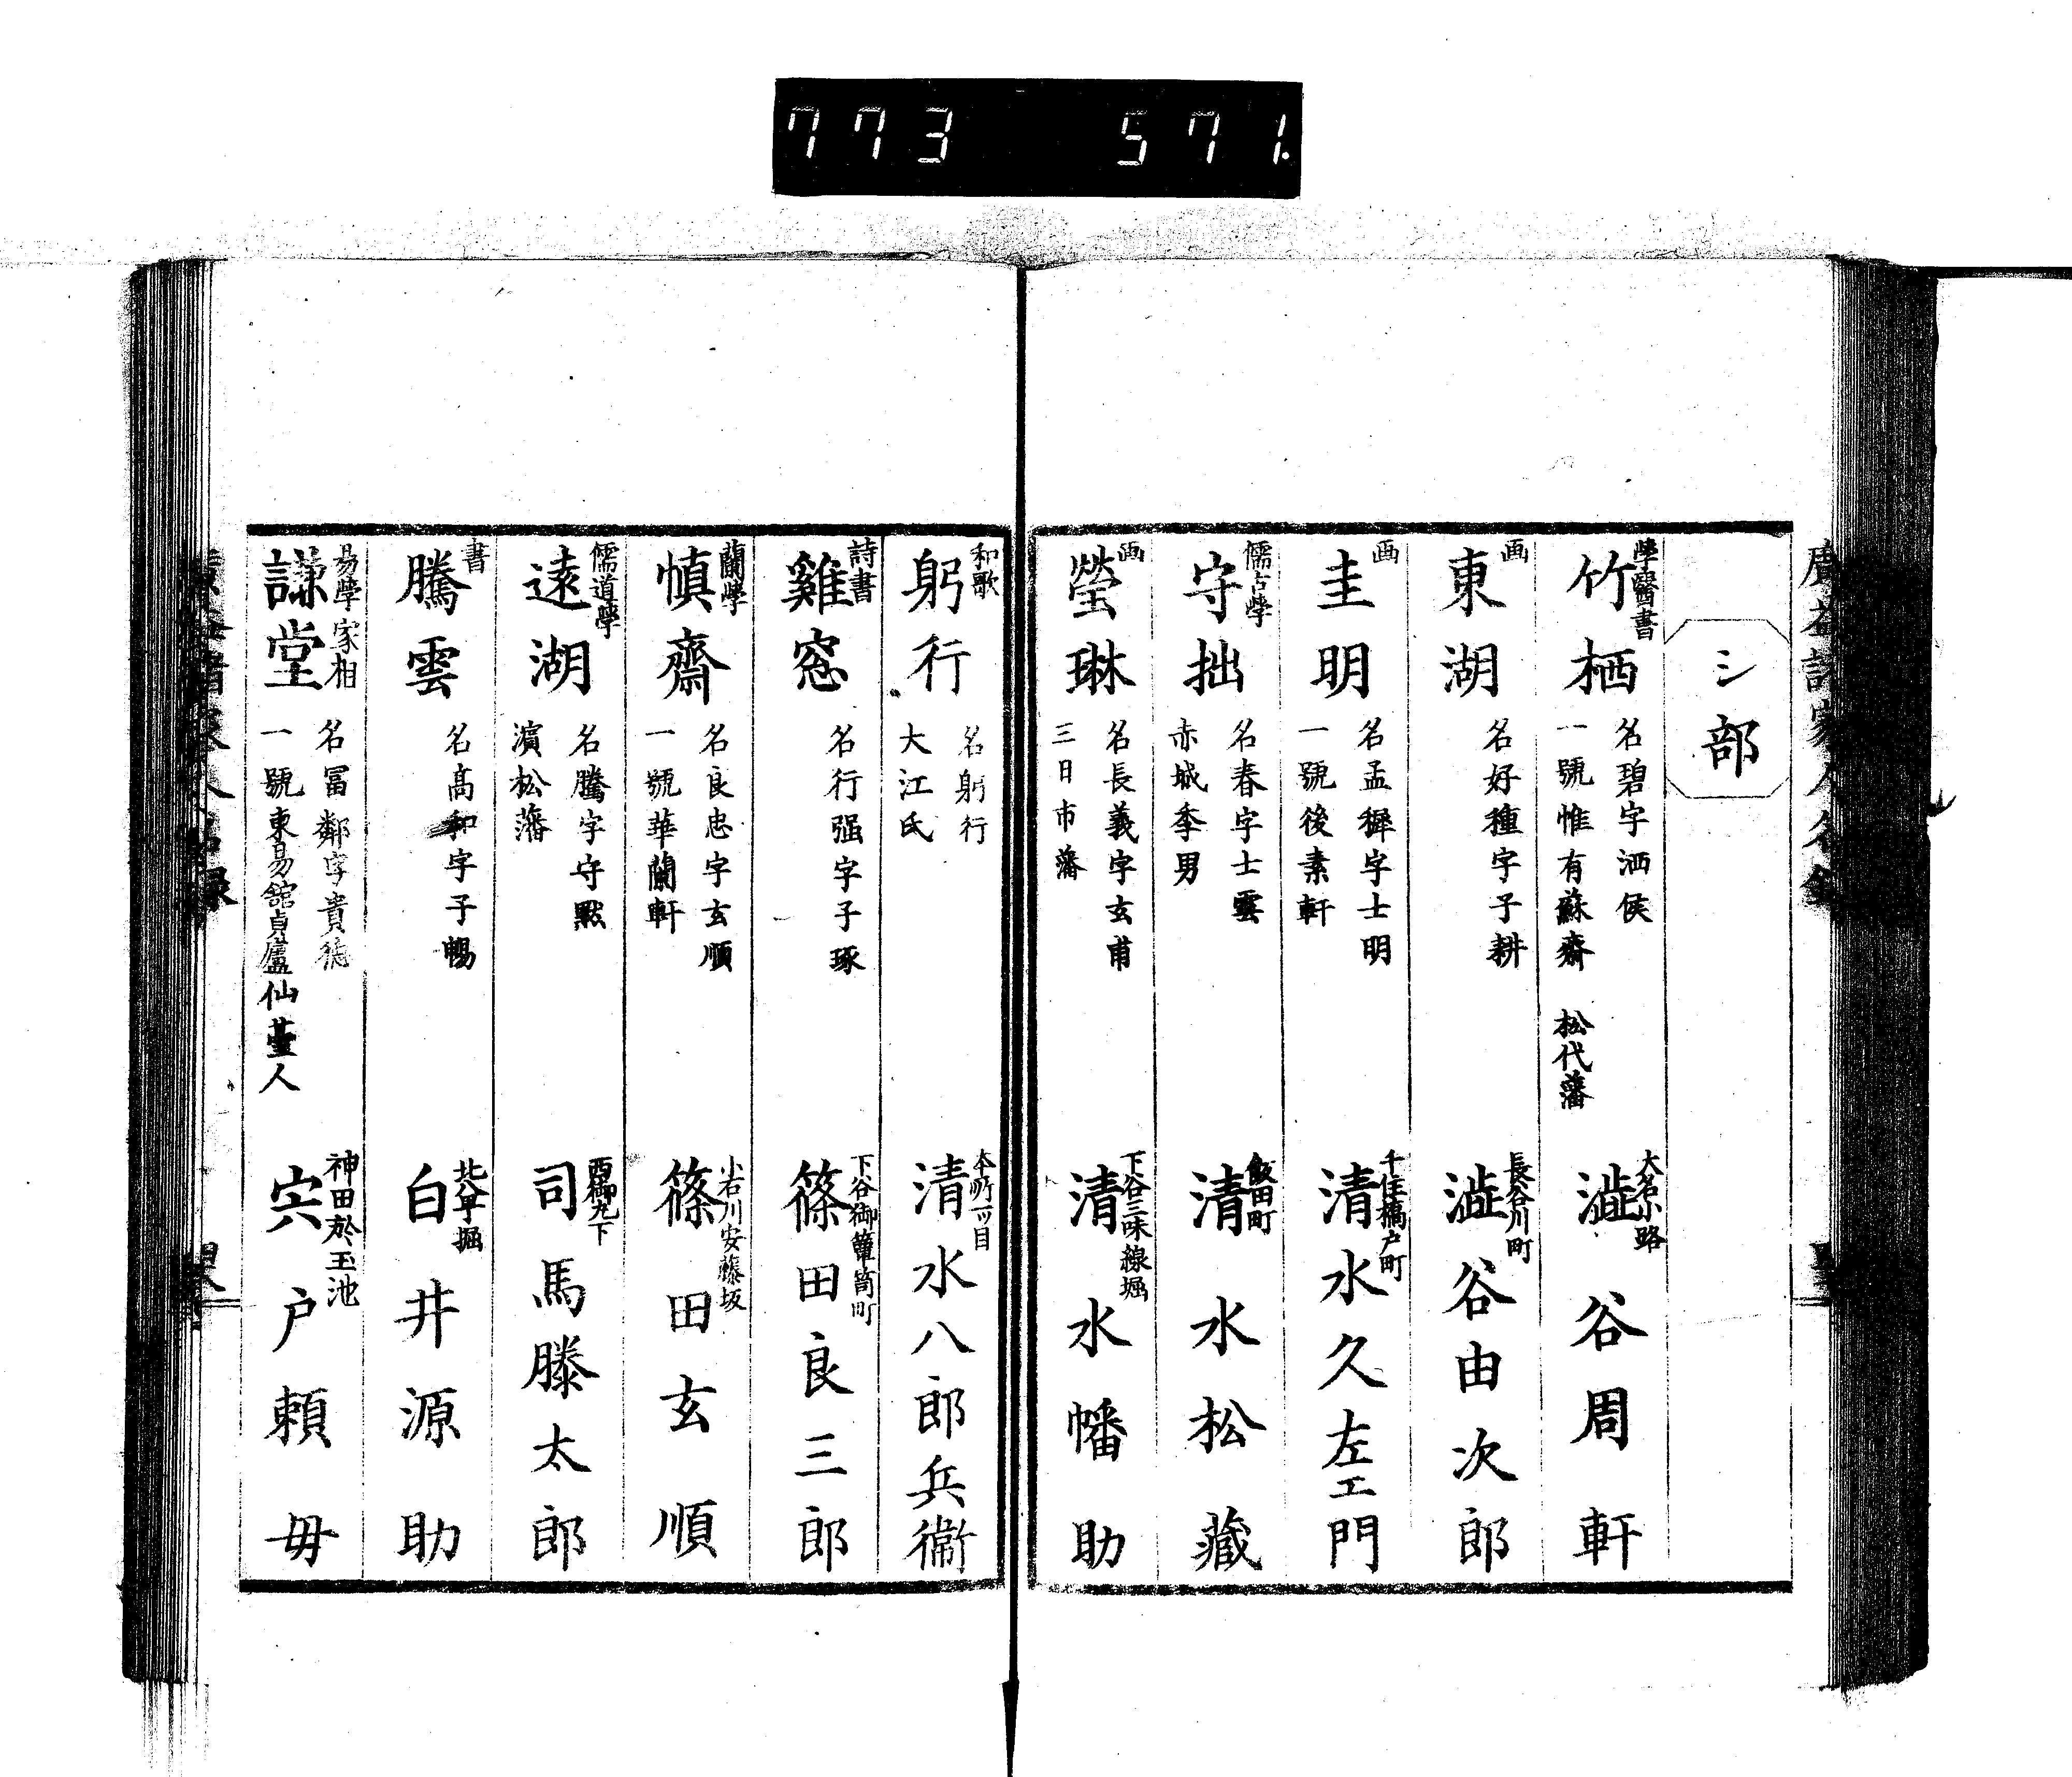 773 571.
シ部
學醫書
竹栖
名碧字洒侯
一號惟有蘇齋 松代藩
大名小路
澁谷周軒
画
東湖
名好種字子耕
長谷川町
澁谷由次郎
画
圭明
名孟樨字士明
一號後素軒
千住橋戸町
清水久左エ門
儒古學
守拙
名春字士雲
赤城季男
飯田町
清水松藏
画
瑩琳
名長義字玄甫
三日市藩
下谷三味線堀
清水幡助
和歌
躬行
名躬行
大江氏
本所一ツ目
清水八郎兵衞
詩書
雞窓
名行强字子琢
下谷御簞笥町
篠田良三郎
蘭學
愼齋
名良忠字玄順
一號華蘭軒
小石川安藤坂
篠田玄順
儒道學
遠湖
名騰字守黙
濵松藩
西御丸下
司馬滕太郎
書
騰雲
名髙和字子暢
北八丁堀
白井源助
易學家相
謙堂
名冨鄰字貴德
一號東易舘貞廬仙臺人
神田於玉池
宍戸頼母